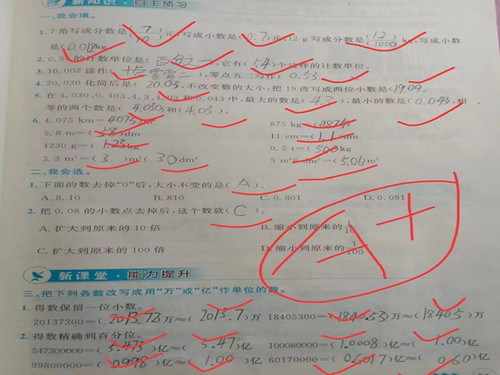 新知识·自主预习
一、我会填。
1. 7角写成分数是(7/10)元,写成小数是(0.7)元;12 g写成分数是(12/1000)kg,写成小数
是(0.012)kg。
2. 0.54的计数单位是(百分之一),它有(54)个这样的计数单位。
3. 10.002读作(十点零零二),零点五三写作(0.53)。
4. 20.030化简后是(20.03),不改变数的大小,把19改写成两位小数是(19.00)。
5. 在4.030、0.403、4.3、4.03和0.043中,最大的数是(4.3),最小的数是(0.043),相
等的两个数是(4.030)和(4.03)。
6. 4.075 km=(4075)m 875 kg=(0.875)t
5.8 m=(58)dm 11 cm=(1.1)dm
1230 g=(1.23)kg 0.5 t=(500)kg
3.3 m²=(3)m²(30)dm² 5 m²6 dm²=(5.06)m²
二、我会选。
1. 下面的数去掉“0”后,大小不变的是(A)。
A. 8.10 B. 810 C. 0.801 D. 0.081
2. 把0.08的小数点去掉后,这个数就(C)。
A. 扩大到原来的10倍 B. 缩小到原来的1/10
C. 扩大到原来的100倍 D. 缩小到原来的1/100
A+
新课堂·能力提升
三、把下列各数改写成用“万”或“亿”作单位的数。
1. 得数保留一位小数。
20137200=(2013.72)万≈(2013.7)万 18405300=(1840.53)万≈(1840.5)万
2. 得数精确到百分位。
547300000=(5.473)亿≈(5.47)亿 100080000=(1.0008)亿≈(1.00)亿
99800000=(0.998)亿≈(1.00)亿 60170000=(0.6017)亿≈(0.60)亿